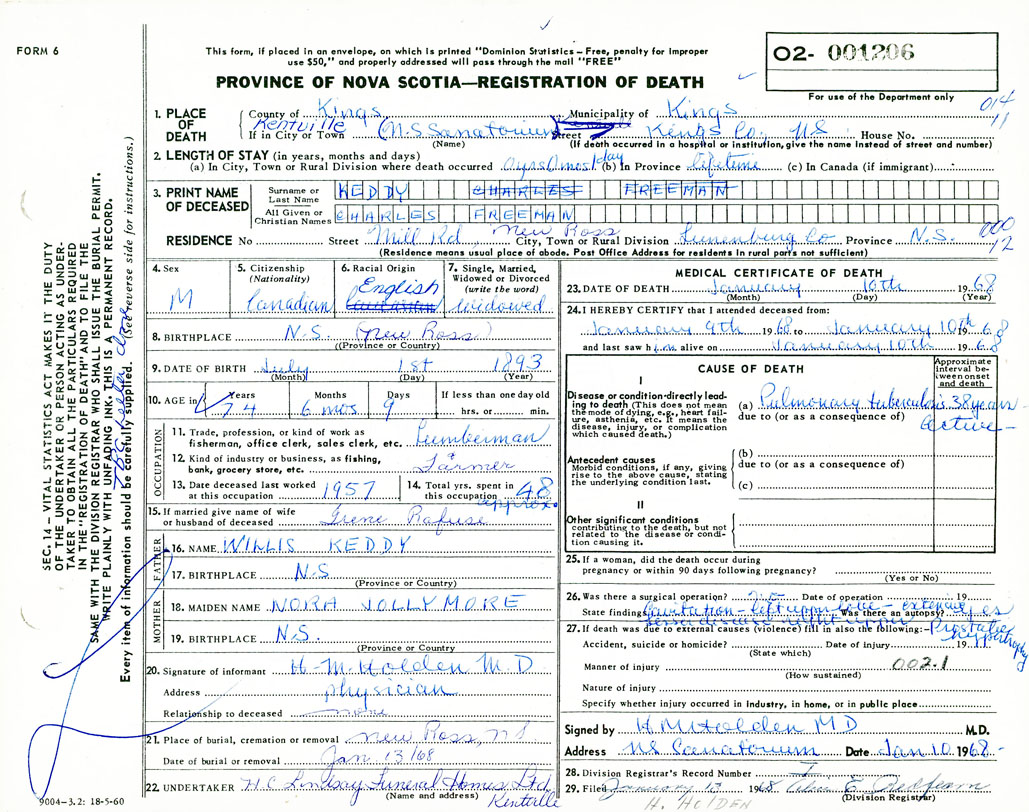 FORM 6
This form, if placed in an envelope, on which is printed "Dominion Statistics - Free, penalty for improper
use $50," and properly addressed will pass through the mail "FREE"
PROVINCE OF NOVA SCOTIA—REGISTRATION OF DEATH
O2- 001206
For use of the Department only
014
11
1. PLACE OF DEATH
County of Kings Municipality of Kings
If in City or Town Kentville (N.S. Sanatorium Street Kings Co, NS House No.
(Name) (If death occurred in a hospital or institution, give the name instead of street and number)
2. LENGTH OF STAY (in years, months and days)
(a) In City, Town or Rural Division where death occurred 0yrs 0mos 1day (b) In Province lifetime (c) In Canada (if immigrant)
3. PRINT NAME OF DECEASED
Surname or Last Name KEDDY CHARLES FREEMAN
All Given or Christian Names CHARLES FREEMAN
RESIDENCE No Street Mill Rd New Ross City, Town or Rural Division Lunenburg Co Province N.S.
000
12
(Residence means usual place of abode. Post Office Address for residents in rural parts not sufficient)
4. Sex M
5. Citizenship (Nationality) Canadian
6. Racial Origin English
7. Single, Married, Widowed or Divorced (write the word) widowed
8. BIRTHPLACE N.S. (New Ross)
(Province or Country)
9. DATE OF BIRTH July 1st 1893
(Month) (Day) (Year)
10. AGE in Years 74 Months 6 mos Days 9 If less than one day old hrs. or min.
OCCUPATION
11. Trade, profession, or kind of work as fisherman, office clerk, sales clerk, etc. Lumberman
12. Kind of industry or business, as fishing, bank, grocery store, etc. Farmer
13. Date deceased last worked at this occupation 1957
14. Total yrs. spent in this occupation 48 approx.
15. If married give name of wife or husband of deceased Irene Rafuse
FATHER
16. NAME WILLIS KEDDY
17. BIRTHPLACE N.S
(Province or Country)
MOTHER
18. MAIDEN NAME NORA JOLLYMORE
19. BIRTHPLACE N.S.
(Province or Country)
20. Signature of informant H.M. Holden M.D
Address physician
Relationship to deceased none
21. Place of burial, cremation or removal New Ross, NS
Date of burial or removal Jan. 13/68
22. UNDERTAKER H.C. Lindsay Funeral Homes Ltd
(Name and address) Kentville
9004-3.2: 18-5-60
MEDICAL CERTIFICATE OF DEATH
23. DATE OF DEATH January 10th 1968
(Month) (Day) (Year)
24. I HEREBY CERTIFY that I attended deceased from:
January 9th 1968 to January 10th 1968
and last saw him alive on January 10th 1968
CAUSE OF DEATH
Approximate interval between onset and death
I
Disease or condition directly leading to death (This does not mean the mode of dying, e.g., heart failure, asthenia, etc. It means the disease, injury, or complication which caused death.)
(a) Pulmonary tuberculosis 38 years -
due to (or as a consequence of) active -
Antecedent causes
Morbid conditions, if any, giving rise to the above cause, stating the underlying condition last.
(b)
due to (or as a consequence of)
(c)
II
Other significant conditions contributing to the death, but not related to the disease or condition causing it.
25. If a woman, did the death occur during pregnancy or within 90 days following pregnancy?
(Yes or No)
26. Was there a surgical operation? Date of operation 19
State findings Cavitation - left upper lobe - extensive Was there an autopsy? yes
lesser disease right upper
Prostatic hypertrophy
27. If death was due to external causes (violence) fill in also the following:-
Accident, suicide or homicide? Date of injury 19
(State which)
Manner of injury 002.1
(How sustained)
Nature of injury
Specify whether injury occurred in industry, in home, or in public place
Signed by H M Holden MD M.D.
Address NS Sanatorium Date Jan 10 1968-
28. Division Registrar's Record Number 7
29. Filed January 13 1968
(Division Registrar)
H. HOLDEN
SEC. 14 - VITAL STATISTICS ACT MAKES IT THE DUTY
OF THE UNDERTAKER OR PERSON ACTING AS UNDER-
TAKER TO OBTAIN ALL THE PARTICULARS REQUIRED
IN THE "REGISTRATION OF DEATH" AND TO FILE THE
SAME WITH THE DIVISION REGISTRAR WHO SHALL ISSUE THE BURIAL PERMIT.
WRITE PLAINLY WITH UNFADING INK. THIS IS A PERMANENT RECORD.
Every item of information should be carefully supplied. (See reverse side for instructions.)